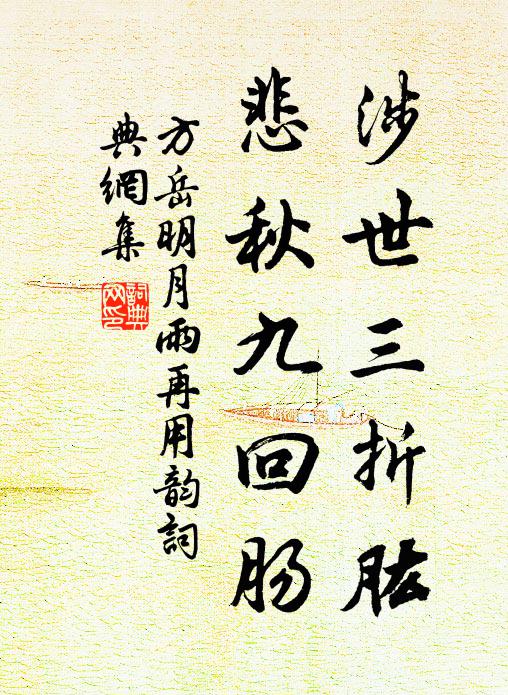 涉世三折肱
悲秋九回肠
方岳明月雨再用韵词
典網集
詞典
网印